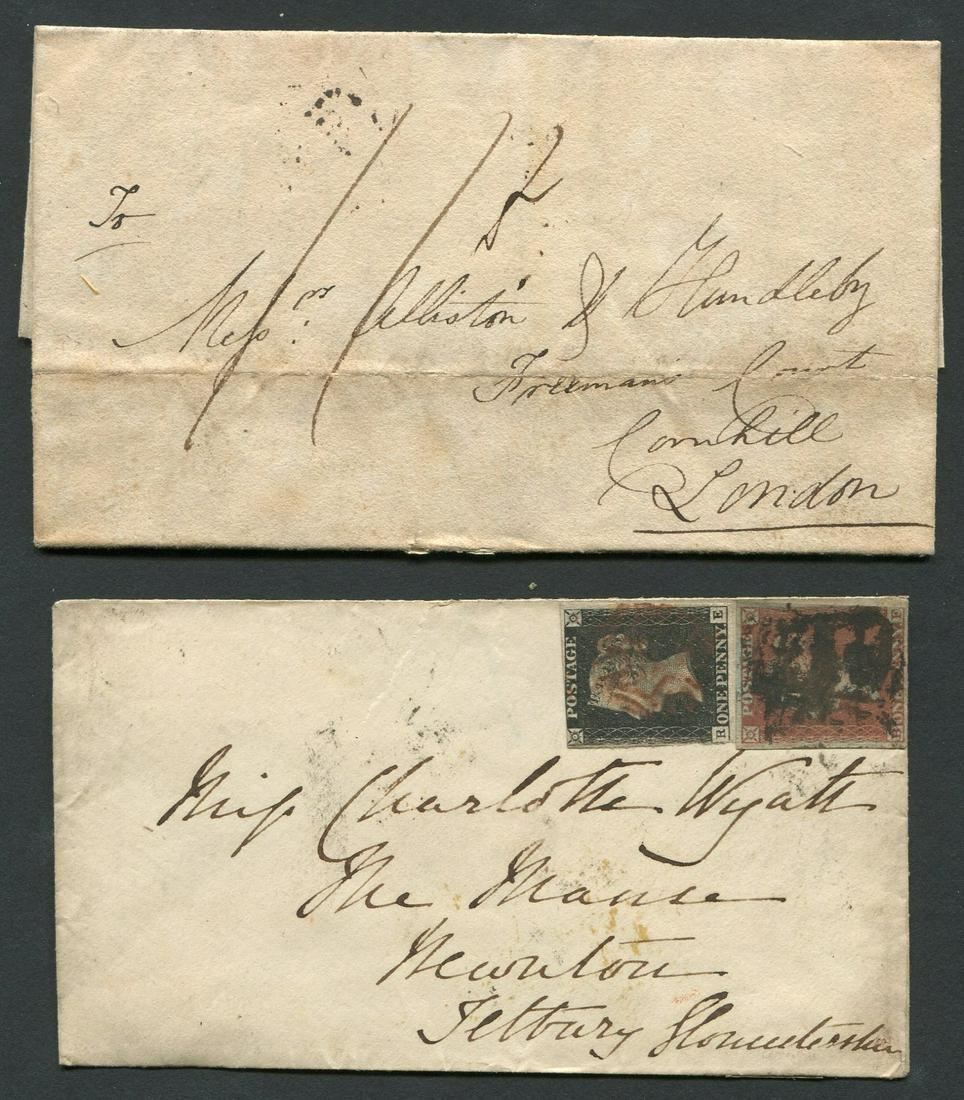 To
Messrs. Alliston & Hundleby
Freemans Court
Cornhill
London
POSTAGE
ONE PENNY
R E
POSTAGE
ONE PENNY
B E
Miss Charlotte Wyatt
The Manse
Newnton
Tetbury Gloucestershire